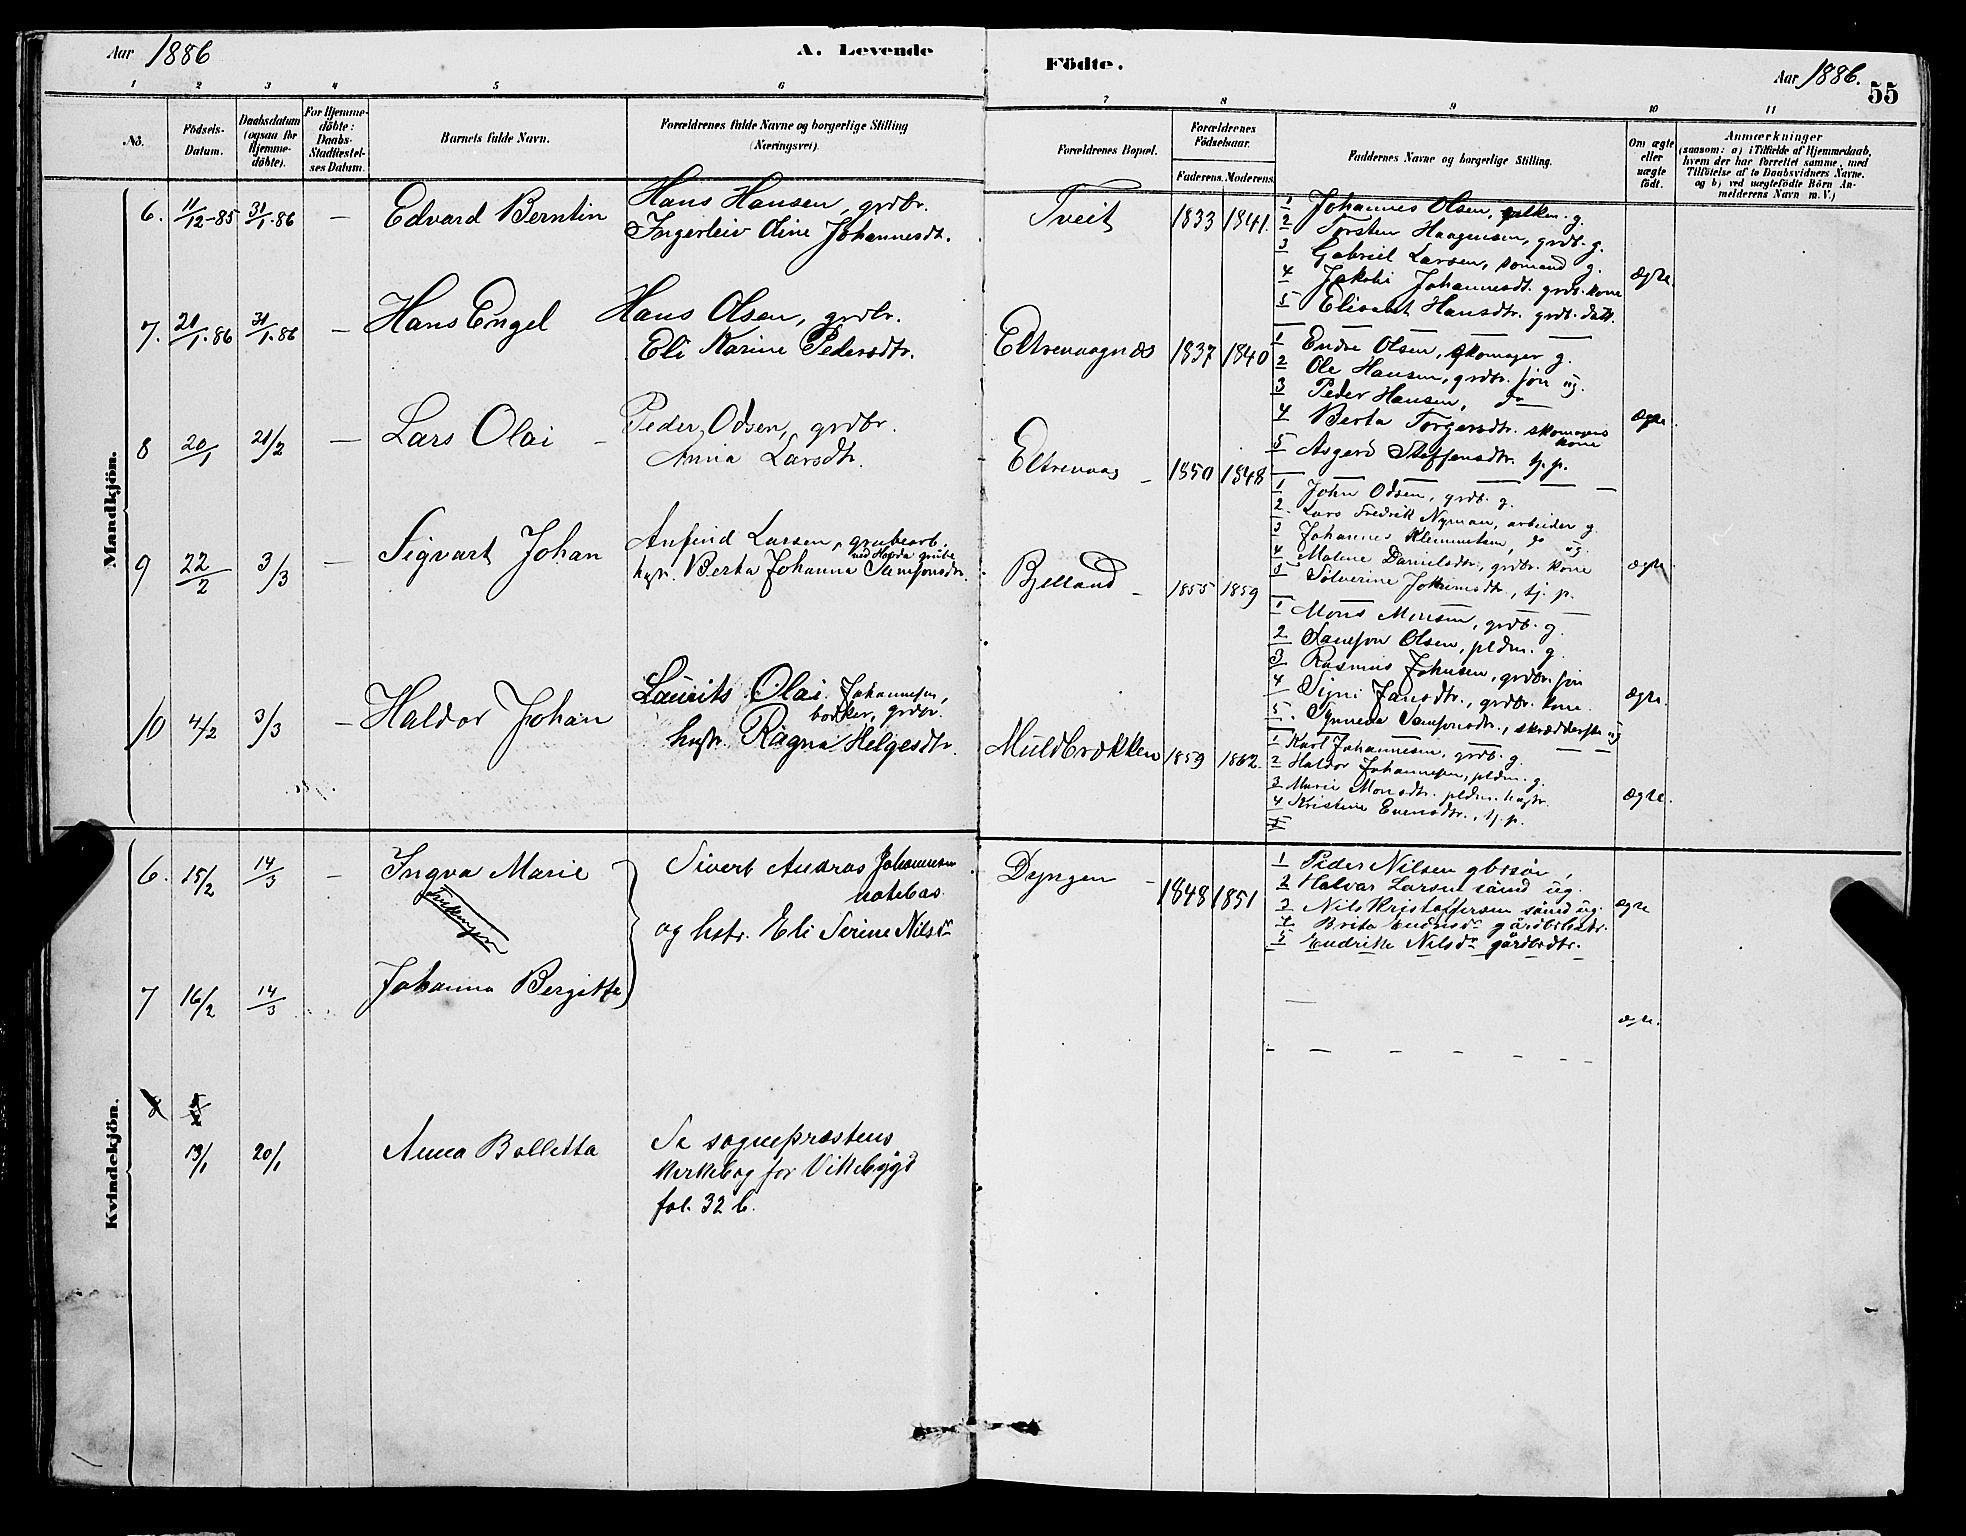 Aar 1886
A. Levende
Födte.
Aar 1886.
55
1 2 3 4 5 6 7 8 9 10 11
No.
Födsels-Datum.
Daabsdatum (ogsaa for Hjemme-döbte).
For Hjemme-döbte: Daabs-Stadfæstel-ses Datum.
Barnets fulde Navn.
Forældrenes fulde Navne og borgerlige Stilling
(Næringsvei).
Forældrenes Bopæl.
Forældrenes Födselsaar.
Faderens. Moderens.
Faddernes Navne og borgerlige Stilling.
Om ægte eller uægte födt.
Anmærkninger
(saasom: a) i Tilfælde af Hjemmedaab,
hvem der har forrettet samme, med
Tilföielse af to Daabsvidners Navne.
og b) ved uægtefödte Börn An-
melderens Navn m. V.)
Mandkjön.
6. 11/12-85 31/1-86 — Edvard Berntin
Hans Hansen, grdbr.
Ingerleiv Oline Johannesdt.
Tveit 1833 1841.
1 Johannes Olsen, g.
2 Torsten Haagensen, grdb. g.
3 Gabriel Larsen, sömand g.
4 Jakobi Johannesdt. grdb. kone
5 Elisabet Hansdtr. grdb. datt.
ægte.
7. 21/1-86 31/1-86 — Hans Engel
Hans Olsen, grdbr.
Eli Karine Pedersdtr.
Eltrevaagnæs 1837 1840
1 Endre Olsen, skomager g.
2 Ole Hansen, grdbr. sön ug.
3 Peder Hansen, do
4 Berta Torgersdtr. skomagers kone
5 Asgerd Steffensdtr. tj. p.
ægte.
8 20/1 21/2 — Lars Olai
Peder Odsen, grdbr.
Anna Larsdtr.
Eltrevaag 1850 1848
1 John Odsen, grdb. g.
2. Lars Fredrik Nyman, arbeider g.
3 Johannes Klemmetsen, do ug.
4 Malene Danielsdtr., grdbr. kone
5 Sölverine Jokumsdtr., tj. p.
ægte
9 22/2 3/3 — Sigvart Johan
Anfind Larsen, grubearb.
ved Hopda grube
hustr. Berta Johanna Samsonsdtr.
Bjelland 1855 1859
1 Mons Monsen, grdb. g.
2 Samson Olsen, pldm. g.
3 Rasmus Johnsen, grdbr. sön
4 Signi Jansdtr., grdbr. kone.
5. Synneva Samsonsdtr., skrædderske ug
ægte.
10 4/2 3/3 — Haldor Johan
Laurits Olai Johannesen,
bödker, grdbr.
hustr. Ragna Helgesdtr.
Muldbrækken 1859 1862
1 Karl Johannesen, grdb. g.
2 Haldor Johannesen, pldm. g.
3 Marie Monsdtr. pldm. hustr.
4 Kristine Evensdtr., tj. p.
5
ægte.
Kvindekjön.
6. 15/2 14/3 — Ingva Marie
Sivert Andras Johannesen
notebas
og hstr. Eli Serine Nilsdr
Dyngen 1848 1851
1 Peder Nilsen gbssön,
2 Halvar Larsen sömd ug.
3 Nils Kristoffersen sömd ug.
4 Brita Endresdr gårdbrhstr.
5 Endrikke Nilsdr gårdbrdtr.
ægte
7 16/2 14/3 Johanna Bergitte
ægte.
8
13/1 20/1 Anna Bolletta
Se sognepræstens
kirkebog for Vikebygd
fol. 32 b.